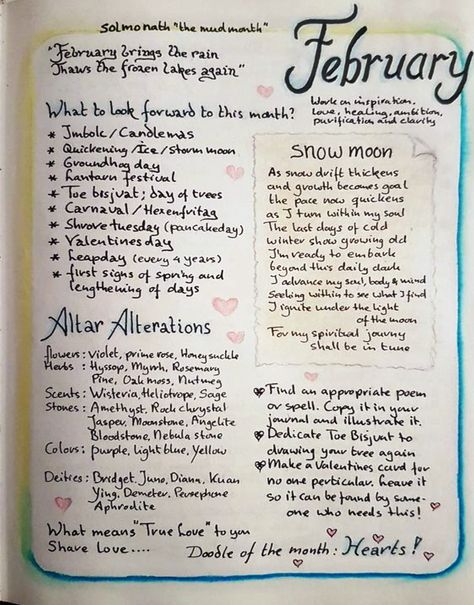 Solmonath "the mud month"
February
"February brings the rain
Thaws the frozen lakes again"
What to look forward to this month?
* Imbolc/Candlemas
* Quickening/Ice/Storm moon
* Groundhog day
* Lantarn festival
* Toe bisjvat; day of trees
* Carnaval/Hexenfritag
* Shrove tuesday (pancakeday)
* Valentines day
* Leapday (every 4 years)
* first signs of spring and
lengthening of days
Work on inspiration.
love, healing, ambition,
purification and clarity
Snow moon
As snow drift thickens
and growth becomes goal
the pace now quickens
as I turn within my soul
The last days of cold
winter show growing old
I'm ready to embark
beyond this daily dark
I advance my soul, body & mind
Seeking within to see what I find
I ignite under the light
of the moon
For my spiritual journy
shall be in tune
Altar Alterations
flowers: Violet, prime rose, Honeysuckle
Herbs: Hyssop, Myrrh, Rosemary
Pine, Oak moss, Nutmeg
Scents: Wisteria, Heliotrope, Sage
Stones: Amethyst, Rock chrystal
Jasper, Moonstone, Angelite
Bloodstone, Nebula stone
Colors: purple, Light blue, Yellow
Deities: Bridget, Juno, Diana, Kuan
Ying, Demeter, Persephone
Aphrodite
What means "True Love" to you
Share Love....
Find an appropriate poem
or spell. Copy it in your
journal and illustrate it.
Dedicate Toe Bisjvat to
drawing your tree again
Make a Valentines card for
no one perticular. Leave it
so it can be found by some-
one who needs this!
Doodle of the month: Hearts!